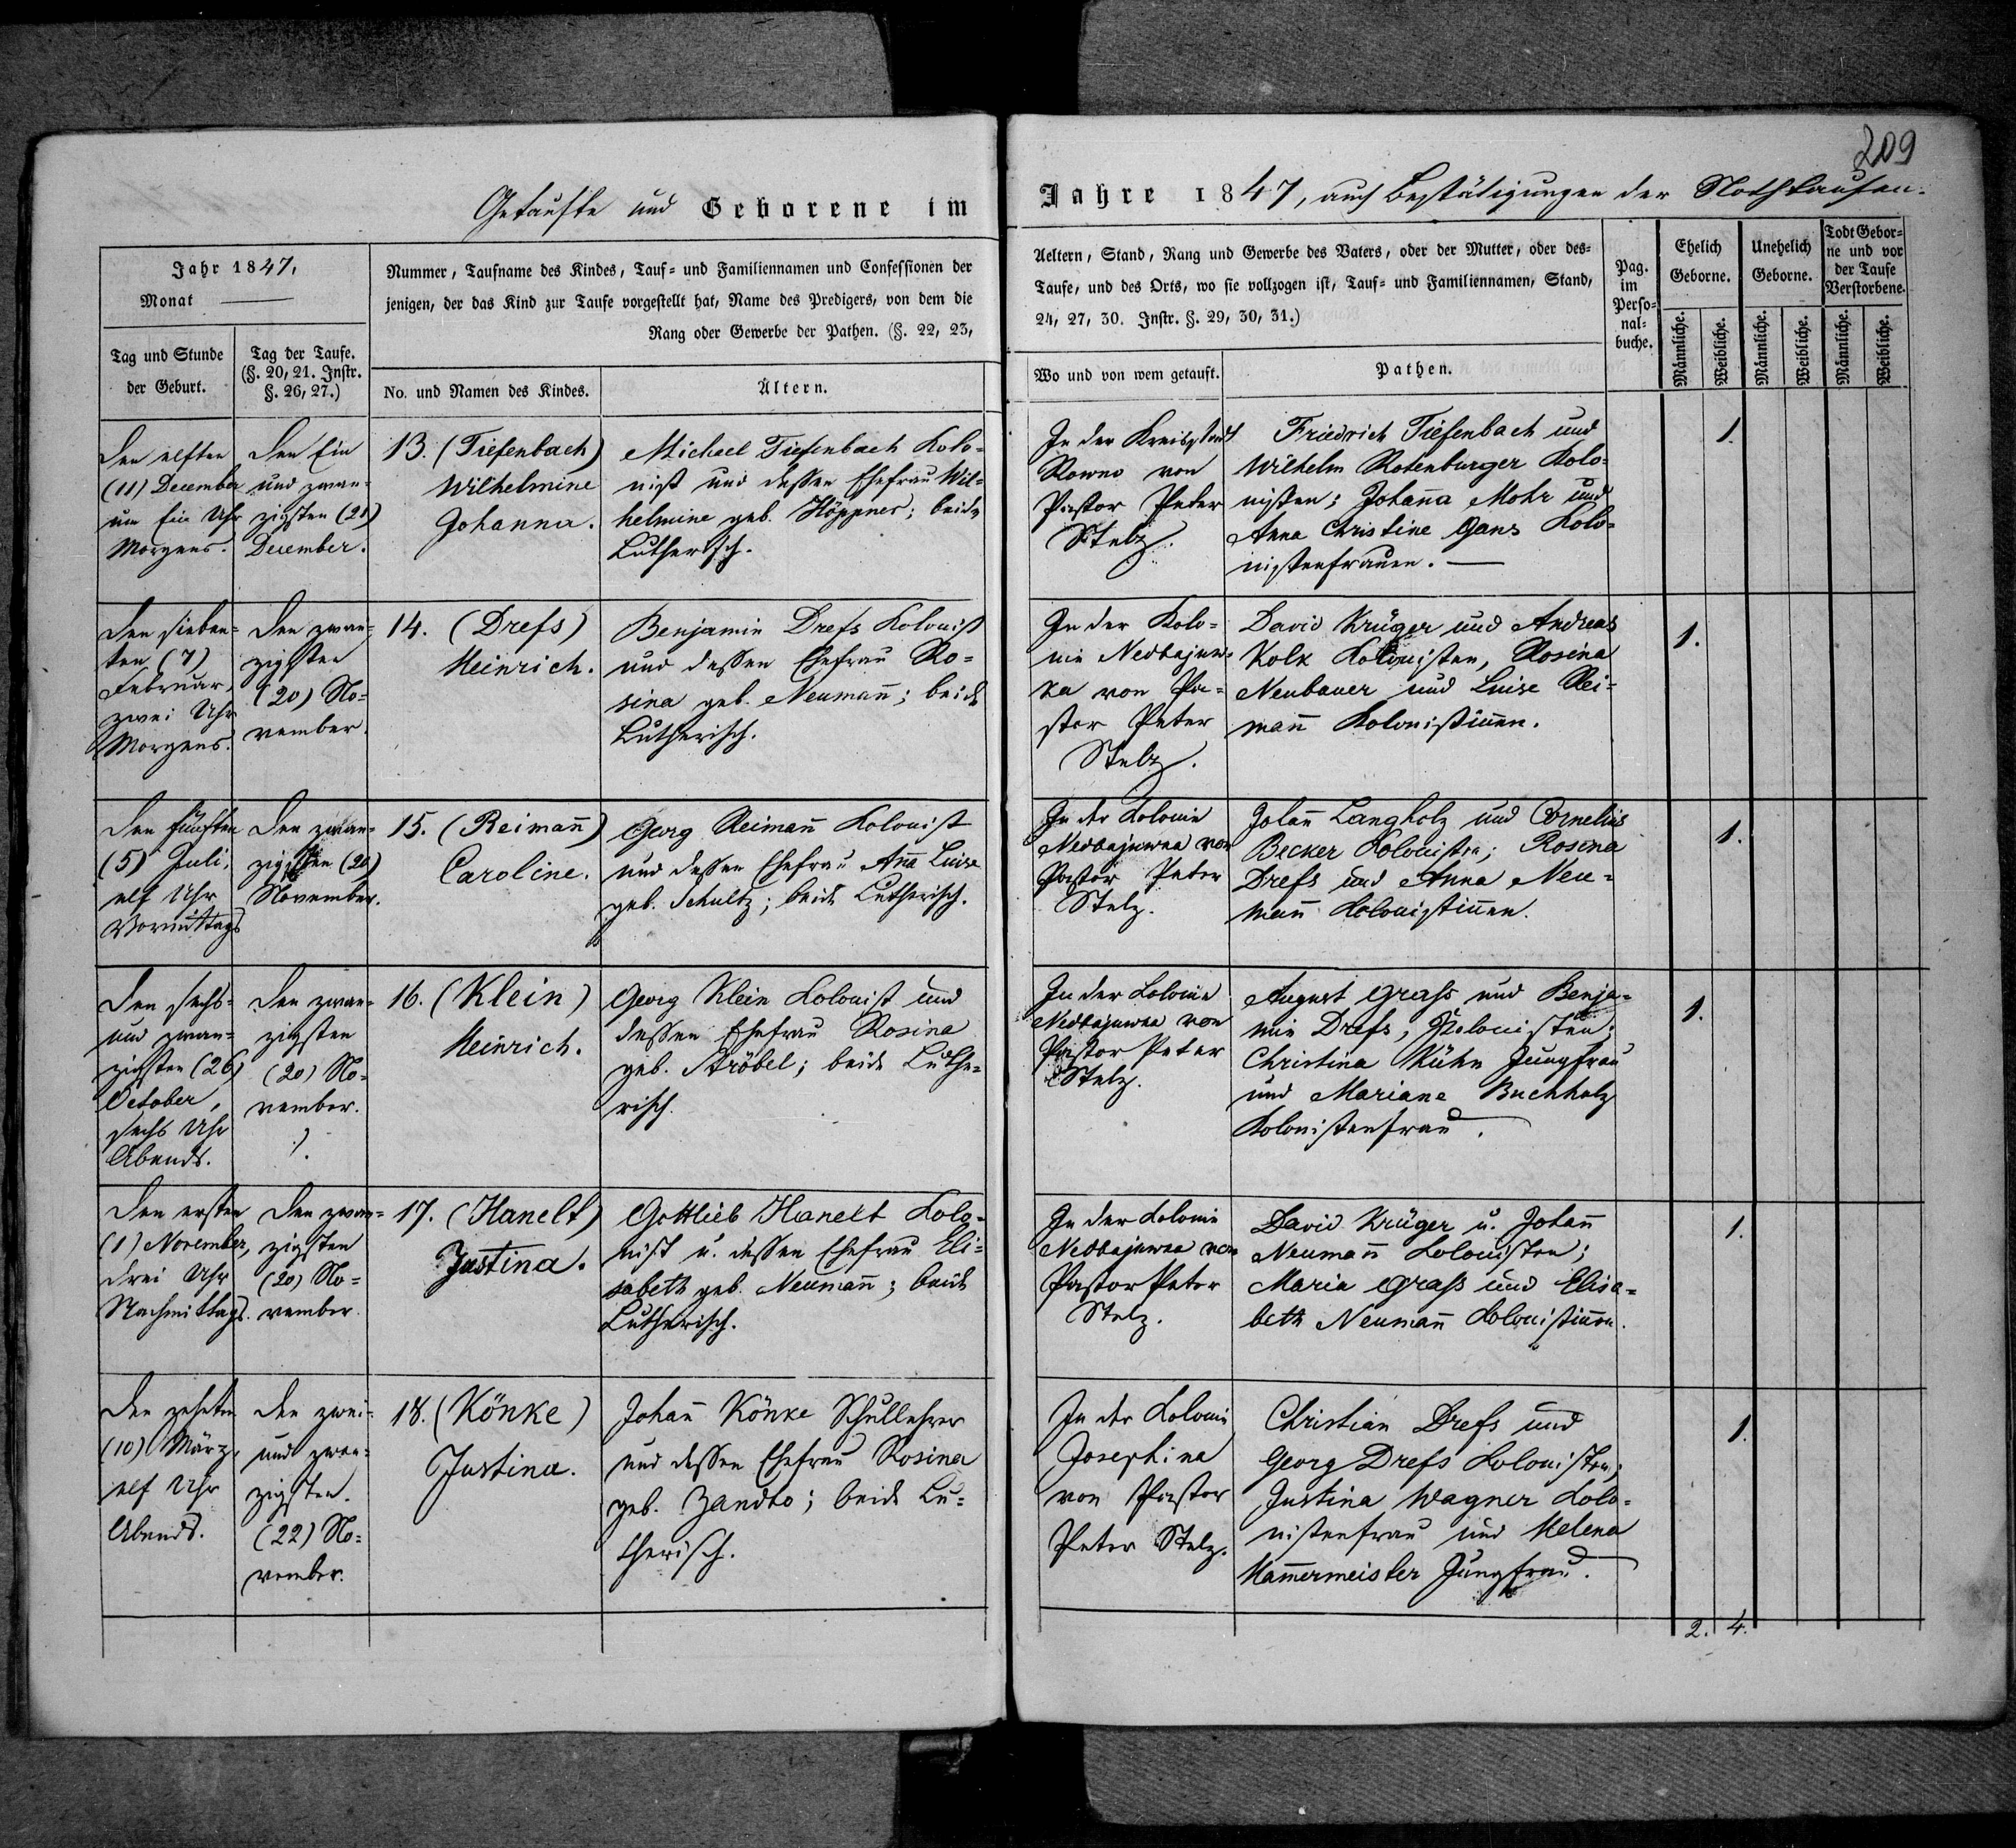 209
Getaufte und Geborene im
Jahre 1847, auch Bestätigungen der Nothtaufen.
Jahr 1847,
Monat
Tag und Stunde
der Geburt.
Tag der Taufe.
(§. 20, 21. Instr.
§. 26, 27.)
Nummer, Taufname des Kindes, Tauf- und Familiennamen und Confessionen der
jenigen, der das Kind zur Taufe vorgestellt hat, Name des Predigers, von dem die
Rang oder Gewerbe der Pathen. (§. 22, 23,
No. und Namen des Kindes.
Ältern.
Aeltern, Stand, Rang und Gewerbe des Vaters, oder der Mutter, oder des-
Taufe, und des Orts, wo sie vollzogen ist, Tauf- und Familiennamen, Stand,
24, 27, 30. Instr. §. 29, 30, 31.)
Wo und von wem getauft.
Pathen.
Pag.
im
Perso-
nal-
buche.
Ehelich
Geborne.
Unehelich
Geborne.
Todt Gebor-
ne und vor
der Taufe
Verstorbene.
Männliche.
Weibliche.
Männliche.
Weibliche.
Männliche.
Weibliche.
Den elften
(11) December
um Ein Uhr
Morgens.
Den Ein
und zwan-
zigsten (21)
December.
13. (Tiefenbach)
Wilhelmine
Johanna.
Michael Tiefenbach Kolo-
nist und dessen Ehefrau Wil-
helmine geb. Höppner; beide
Lutherisch.
In der Kreisstadt
Rowno von
Pastor Peter
Stelz.
Friedrich Tiefenbach und
Wilhelm Rotenburger Kolo-
nisten; Johana Mohr und
Anna Christine Gans Kolo-
nistenfrauen.
1.
Den sieben-
ten (7)
Februar,
zwei Uhr
Morgens.
Den zwan-
zigsten
(20) No-
vember.
14. (Drefs)
Heinrich.
Benjamin Drefs Kolonist
und dessen Ehefrau Ro-
sina geb. Neuman̄; beide
Lutherisch.
In der Kolo-
nie Nedbajuw-
ka von Pa-
stor Peter
Stelz.
David Krüger und Andreas
Kolk Kolonisten, Rosina
Neubauer und Luise Rei-
man̄ Kolonistin̄en.
1.
Den fünften
(5) Juli,
elf Uhr
Vormittags
Den zwan-
zigsten (20)
November.
15. (Reiman̄)
Caroline.
Georg Reiman̄ Kolonist
und dessen Ehefrau An̄a Luise
geb. Schultz; beide Lutherisch.
In der Kolonie
Nedbajuwka von
Pastor Peter
Stelz.
Johan̄ Langholz und Cornelius
Becker Kolonisten; Rosina
Drefs und Anna Neu-
man̄ Kolonistin̄en.
1.
Den sechs-
und zwan-
zigsten (26)
October,
sechs Uhr
Abends.
Den zwan-
zigsten
(20) No-
vember.
16. (Klein)
Heinrich.
Georg Klein Kolonist und
dessen Ehefrau Rosina
geb. Ströbel; beide Luthe-
risch.
In der Kolonie
Nedbajuwka von
Pastor Peter
Stelz.
August Grass und Benja-
min Drefs, Kolonisten;
Christina Kühn Jungfrau
und Mariane Buchholz
Kolonistenfrau.
1.
Den ersten
(1) November,
drei Uhr
Nachmittags.
Den zwan-
zigsten
(20) No-
vember.
17. (Hanelt)
Justina.
Gottlieb Hanelt Kolo-
nist u. dessen Ehefrau Eli-
sabeth geb. Neuman̄; beide
Lutherisch.
In der Kolonie
Nedbajuwka von
Pastor Peter
Stelz.
David Krüger u. Johan̄
Neuman̄ Kolonisten;
Maria Grass und Elisa-
beth Neuman̄ Kolonistin̄en.
1.
Den zehnten
(10) März,
elf Uhr
Abends.
Den zwei-
und zwan-
zigsten
(22) No-
vember.
18. (Könke)
Justina.
Johan̄ Könke Schullehrer
und dessen Ehefrau Rosina
geb. Zandto; beide Lu-
therisch.
In der Kolonie
Josephina
von Pastor
Peter Stelz.
Christian Drefs und
Georg Drefs Kolonisten;
Justina Wagner Kolo-
nistenfrau und Helena
Ham̄ermeister Jungfrau.
1.
2. 4.